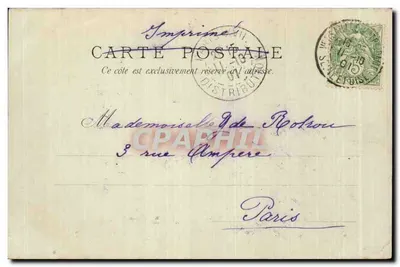 Imprimé
CARTE POSTALE
Ce côté est exclusivement réservé à l'adresse.
DISTRIBUTION
Mademoiselle J de Rotrou
3 rue Ampère
Paris
CPAPHIL